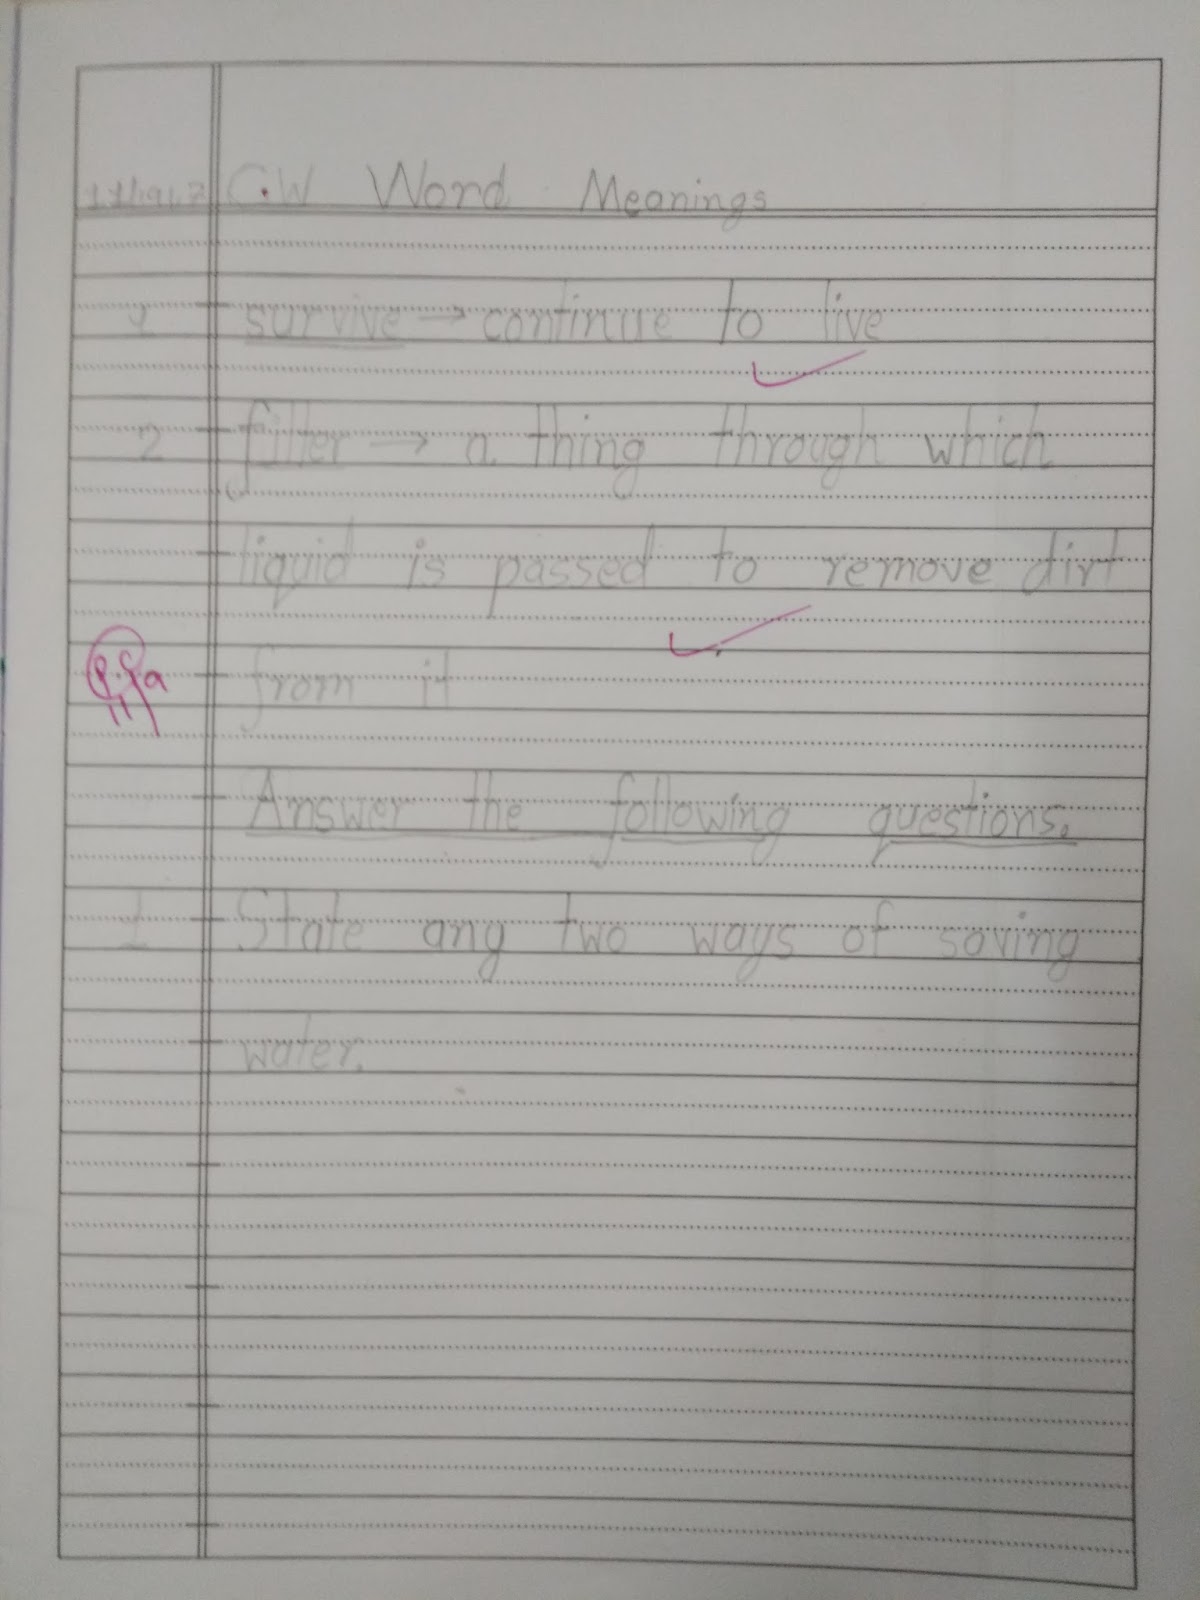 C.W Word Meanings
1 survive → continue to live
2 filter → a thing through which
liquid is passed to remove dirt
from it
Answer the following questions.
1 State any two ways of saving
water.